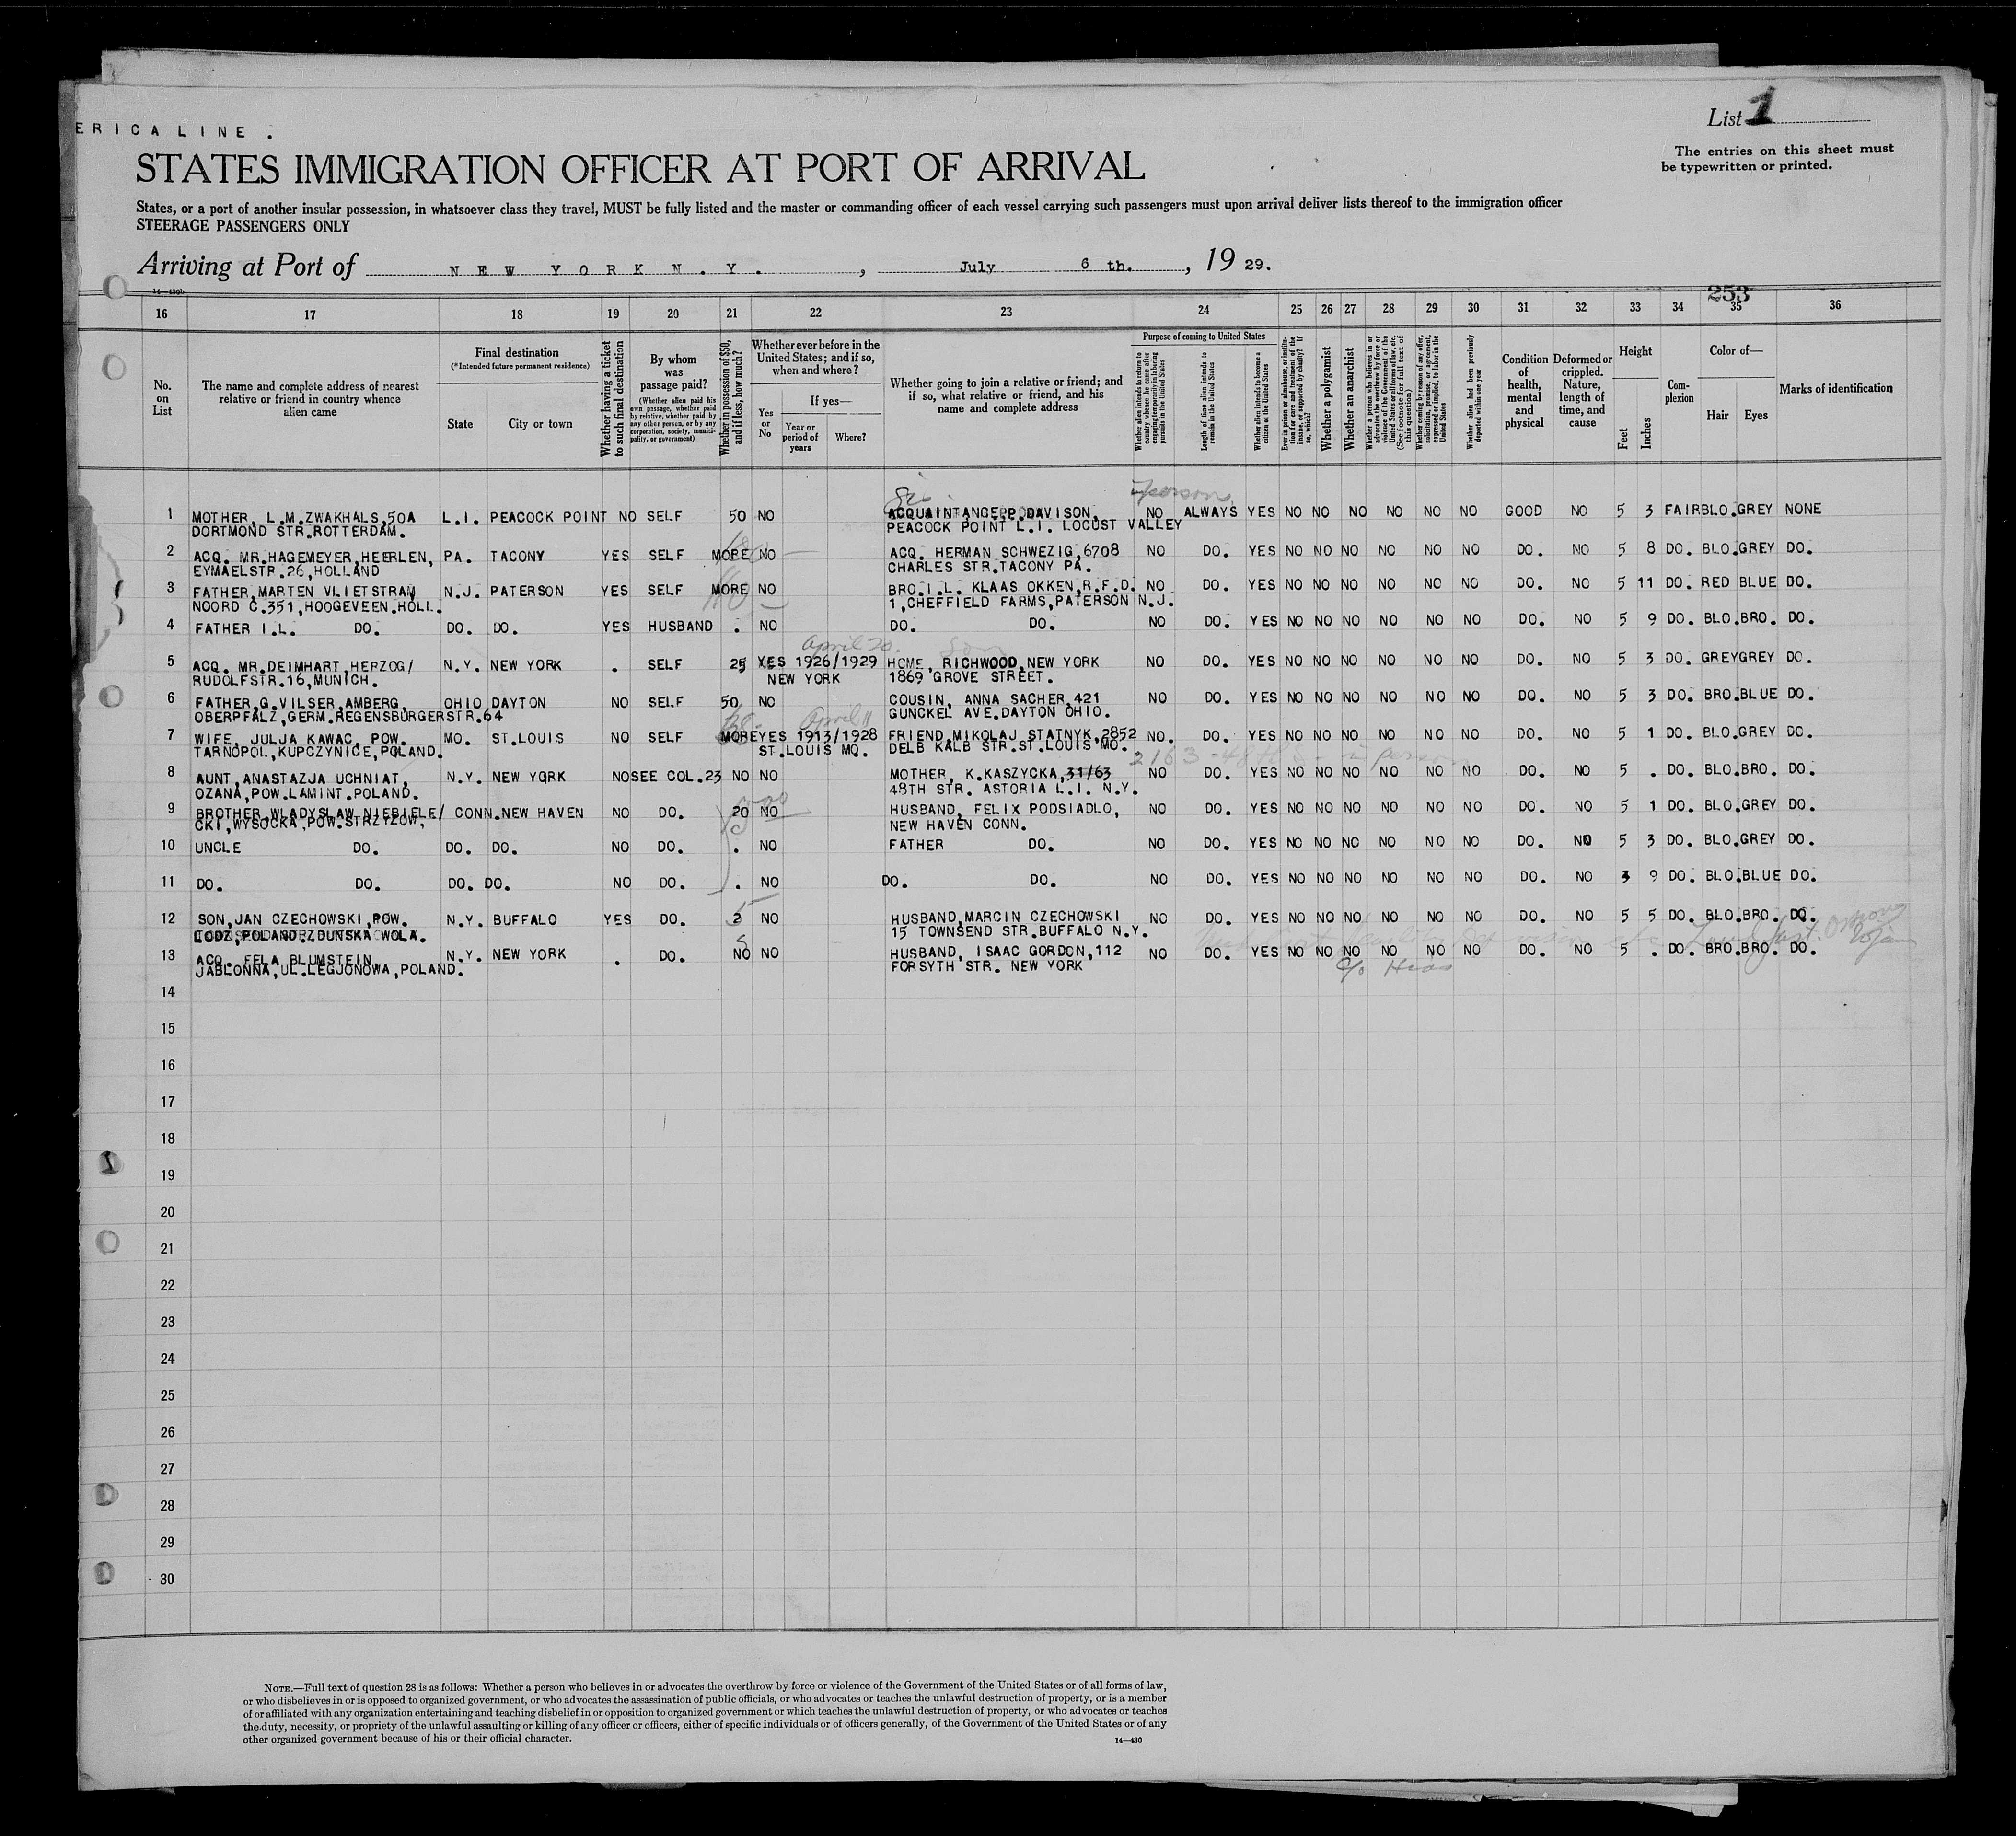 ERICA LINE .
List 1
The entries on this sheet must
be typewritten or printed.
STATES IMMIGRATION OFFICER AT PORT OF ARRIVAL
States, or a port of another insular possession, in whatsoever class they travel, MUST be fully listed and the master or commanding officer of each vessel carrying such passengers must upon arrival deliver lists thereof to the immigration officer
STEERAGE PASSENGERS ONLY
Arriving at Port of NEW YORK N.Y. , July 6 th. , 19 29.
14—430b
253
16 17 18 19 20 21 22 23 24 25 26 27 28 29 30 31 32 33 34 35 36
No. on List
The name and complete address of nearest relative or friend in country whence alien came
Final destination
(*Intended future permanent residence)
State
City or town
Whether having a ticket to such final destination
By whom was passage paid?
(Whether alien paid his own passage, whether paid by relative, whether paid by any other person, or by any corporation, society, municipality, or government)
Whether in possession of $50, and if less, how much?
Whether ever before in the United States; and if so, when and where?
Yes or No
If yes—
Year or period of years
Where?
Whether going to join a relative or friend; and if so, what relative or friend, and his name and complete address
Purpose of coming to United States
Whether alien intends to return to country whence he came after engaging temporarily in laboring pursuits in the United States
Length of time alien intends to remain in the United States
Whether alien intends to become a citizen of the United States
Ever in prison or almshouse, or institution for care and treatment of the insane, or supported by charity? If so, which?
Whether a polygamist
Whether an anarchist
Whether a person who believes in or advocates the overthrow by force or violence of the Government of the United States or all forms of law, etc. (See footnote for full text of this question)
Whether coming by reason of any offer, solicitation, promise, or agreement, expressed or implied, to labor in the United States
Whether alien had been previously deported within one year
Condition of health, mental and physical
Deformed or crippled. Nature, length of time, and cause
Height
Feet
Inches
Complexion
Color of—
Hair
Eyes
Marks of identification
in person
1 MOTHER, L.M.ZWAKHALS,50A L.I. PEACOCK POINT NO SELF 50 NO ACQUAINTANCE:P.DAVISON. NO ALWAYS YES NO NO NO NO NO NO GOOD NO 5 3 FAIR BLO.GREY NONE
DORTMOND STR.ROTTERDAM. PEACOCK POINT L.I. LOCUST VALLEY
2 ACQ. MR.HAGEMEYER,HEERLEN, PA. TACONY YES SELF MORE NO ACQ. HERMAN SCHWEZIG,6708 NO DO. YES NO NO NO NO NO NO DO. NO 5 8 DO. BLO.GREY DO.
EYMAELSTR.26,HOLLAND CHARLES STR.TACONY PA.
3 FATHER,MARTEN VLIETSTRAM N.J. PATERSON YES SELF MORE NO BRO.I.L. KLAAS OKKEN,R.F.D. NO DO. YES NO NO NO NO NO NO DO. NO 5 11 DO. RED BLUE DO.
NOORD C.351,HOOGEVEEN.HOLL. 1,CHEFFIELD FARMS,PATERSON N.J.
4 FATHER I.L. DO. DO. DO. YES HUSBAND . NO DO. DO. NO DO. YES NO NO NO NO NO NO DO. NO 5 9 DO. BLO.BRO. DO.
April 20.
5 ACQ. MR.DEIMHART,HERZOG/ N.Y. NEW YORK . SELF 25 YES 1926/1929 HOME, RICHWOOD,NEW YORK NO DO. YES NO NO NO NO NO NO DO. NO 5 3 DO. GREYGREY DO.
RUDOLFSTR.16,MUNICH. NEW YORK 1869 GROVE STREET.
6 FATHER,G.VILSER,AMBERG, OHIO DAYTON NO SELF 50. NO COUSIN, ANNA SACHER,421 NO DO. YES NO NO NO NO NO NO DO. NO 5 3 DO. BRO.BLUE DO.
OBERPFALZ,GERM.REGENSBURGERSTR.64 GUNCKEL AVE.DAYTON OHIO.
April 11
7 WIFE, JULJA KAWAC, POW. MO. ST.LOUIS NO SELF MORE YES 1913/1928 FRIEND,MIKOLAJ STATNYK,2852 NO. DO. YES NO NO NO NO NO NO DO. NO 5 1 DO. BLO.GREY DO.
TARNOPOL,KUPCZYNICE,POLAND. ST.LOUIS MO. DELB KALB STR.ST.LOUIS MO.
2163-48th S in person
8 AUNT,ANASTAZJA UCHNIAT, N.Y. NEW YORK NO SEE COL.23 NO NO MOTHER, K.KASZYCKA,31/63 NO DO. YES NO NO NO NO NO NO DO. NO 5 . DO. BLO.BRO. DO.
OZANA,POW.LAMINT.POLAND. 48TH STR. ASTORIA L.I. N.Y.
9 BROTHER,WLADYSLAW NIEBIELE/ CONN.NEW HAVEN NO DO. 20 NO HUSBAND, FELIX PODSIADLO, NO DO. YES NO NO NO NO NO NO DO. NO 5 1 DO. BLO.GREY DO.
CKI,WYSOCKA,POW.STRZYZOW, NEW HAVEN CONN.
10 UNCLE DO. DO. DO. NO DO. . NO FATHER DO. NO DO. YES NO NO NO NO NO NO DO. NO 5 3 DO. BLO.GREY DO.
11 DO. DO. DO. DO. NO DO. . NO DO. DO. NO DO. YES NO NO NO NO NO NO DO. NO 3 9 DO. BLO.BLUE DO.
12 SON,JAN CZECHOWSKI,POW. N.Y. BUFFALO YES DO. 2 NO HUSBAND,MARCIN CZECHOWSKI NO DO. YES NO NO NO NO NO NO DO. NO 5 5 DO. BLO.BRO. DO.
LODZ,POLAND.ZDUNSKA WOLA. 15 TOWNSEND STR.BUFFALO N.Y.
13 ACQ. FELA BLUMSTEIN, N.Y. NEW YORK . DO. NO NO HUSBAND, ISAAC GORDON,112 NO DO. YES NO NO NO NO NO NO DO. NO 5 . DO. BRO.BRO. DO.
JABLONNA,UL.LEGJONOWA,POLAND. FORSYTH STR. NEW YORK
c/o Hias
14
15
16
17
18
19
20
21
22
23
24
25
26
27
28
29
30
NOTE.—Full text of question 28 is as follows: Whether a person who believes in or advocates the overthrow by force or violence of the Government of the United States or of all forms of law,
or who disbelieves in or is opposed to organized government, or who advocates the assassination of public officials, or who advocates or teaches the unlawful destruction of property, or is a member
of or affiliated with any organization entertaining and teaching disbelief in or opposition to organized government or which teaches the unlawful destruction of property, or who advocates or teaches
the duty, necessity, or propriety of the unlawful assaulting or killing of any officer or officers, either of specific individuals or of officers generally, of the Government of the United States or of any
other organized government because of his or their official character.
14—430